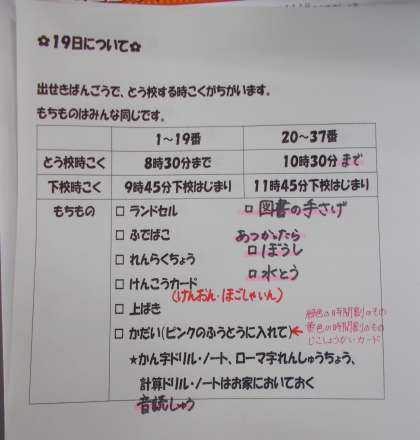 ✿19日について✿
出せきばんごうで、とう校する時こくがちがいます。
もちものはみんな同じです。
1～19番 20～37番
とう校時こく 8時30分まで 10時30分まで
下校時こく 9時45分下校はじまり 11時45分下校はじまり
もちもの □ ランドセル □ 図書の手さげ
□ ふでばこ あつかったら
□ れんらくちょう □ ぼうし
□ けんこうカード □ 水とう
(けんおん・ほごしゃいん)
□ 上ばき
□ かだい(ピンクのふうとうに入れて)←
桃色の時間割のもの
黄色の時間割のもの
じこしょうかいカード
★かん字ドリル・ノート、ローマ字れんしゅうちょう、
計算ドリル・ノートはお家においておく
音読しゅう